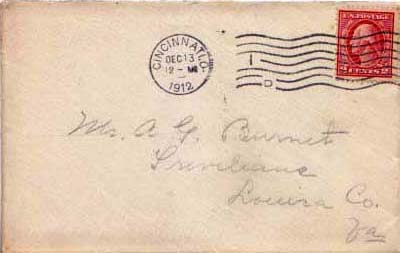 CINCINNATI, O.
DEC 13
12 - M
1912
1
D
U.S. POSTAGE
2 CENTS 2
Mr. A G. Burnet
Trevilians
Louisa Co.
Va